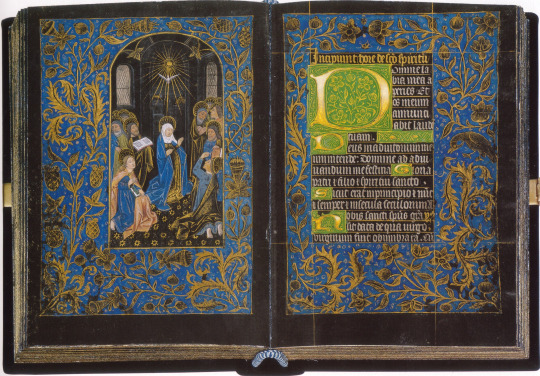 Incipiunt hore de sco spiritu
Domine la
bia mea a
peries Et
os meum
annunci
abit laud
tuam.
Deus in adiutorium me
um intende: Domine ad adiu
uandum me festina Gloria
patri et filio et spiritui sancto
Sicut erat in principio et nunc
et semper et in secula seculorum
Nobis sancti spus gra
sit data de qua uirgo
uirginum fuit obumbrata. Cu